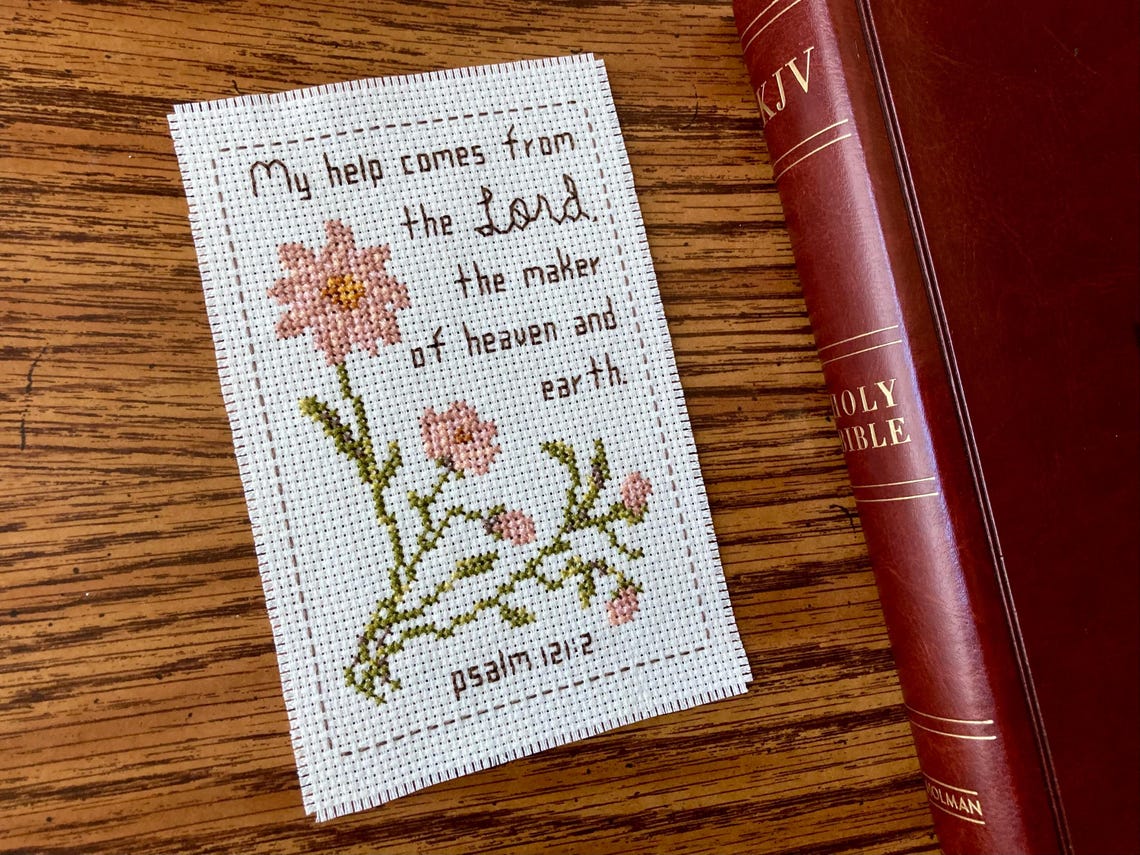 My help comes from
the Lord,
the maker
of heaven and
earth.
psalm 121:2
KJV
HOLY
BIBLE
HOLMAN